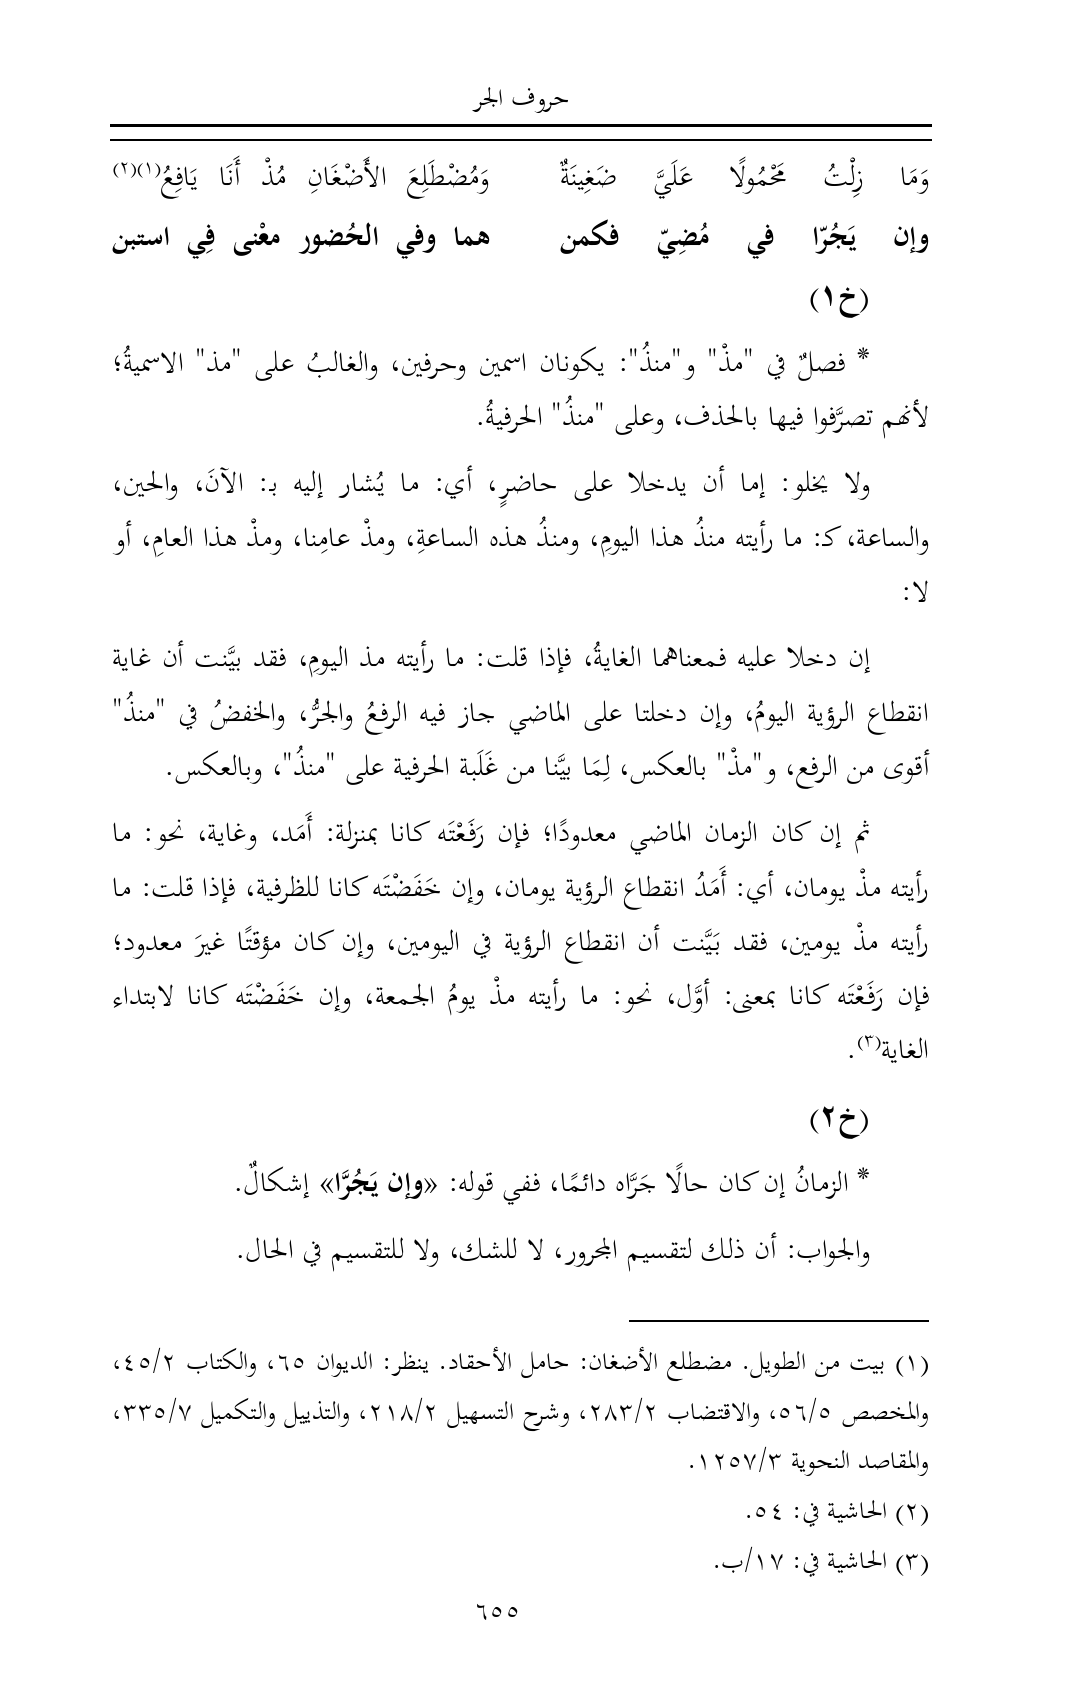 حروف الجر
وَمَا زِلْتُ مَحْمُولًا عَلَيَّ ضَغِينَةٌ وَمُضْطَلِعَ الأَضْغَانِ مُذْ أَنَا يَافِعُ(١)(٢)
وإن يَجُرّا في مُضِيّ فكمن هما وفي الحُضور معْنى فِي استبن
(خ١)
* فصلٌ في "مذْ" و"منذُ": يكونان اسمين وحرفين، والغالبُ على "مذ" الاسميةُ؛
لأنهم تصرَّفوا فيها بالحذف، وعلى "منذُ" الحرفيةُ.
ولا يخلو: إما أن يدخلا على حاضرٍ، أي: ما يُشار إليه بـ: الآنَ، والحين،
والساعة، كـ: ما رأيته منذُ هذا اليومِ، ومنذُ هذه الساعةِ، ومذْ عامِنا، ومذْ هذا العامِ، أو
لا:
إن دخلا عليه فمعناهما الغايةُ، فإذا قلت: ما رأيته مذ اليومِ، فقد بيَّنت أن غاية
انقطاع الرؤية اليومُ، وإن دخلتا على الماضي جاز فيه الرفعُ والجرُّ، والخفضُ في "منذُ"
أقوى من الرفع، و"مذْ" بالعكس، لِمَا بيَّنا من غَلَبة الحرفية على "منذُ"، وبالعكس.
ثم إن كان الزمان الماضي معدودًا؛ فإن رَفَعْتَه كانا بمنزلة: أَمَد، وغاية، نحو: ما
رأيته مذْ يومان، أي: أَمَدُ انقطاع الرؤية يومان، وإن خَفَضْتَه كانا للظرفية، فإذا قلت: ما
رأيته مذْ يومين، فقد بَيَّنت أن انقطاع الرؤية في اليومين، وإن كان مؤقتًا غيرَ معدود؛
فإن رَفَعْتَه كانا بمعنى: أوَّل، نحو: ما رأيته مذْ يومُ الجمعة، وإن خَفَضْتَه كانا لابتداء
الغاية(٣).
(خ٢)
* الزمانُ إن كان حالًا جَرَّاه دائمًا، ففي قوله: «وإن يَجُرَّا» إشكالٌ.
والجواب: أن ذلك لتقسيم المجرور، لا للشك، ولا للتقسيم في الحال.
(١) بيت من الطويل. مضطلع الأضغان: حامل الأحقاد. ينظر: الديوان ٦٥، والكتاب ٤٥/٢،
والمخصص ٥٦/٥، والاقتضاب ٢٨٣/٢، وشرح التسهيل ٢١٨/٢، والتذييل والتكميل ٣٣٥/٧،
والمقاصد النحوية ١٢٥٧/٣.
(٢) الحاشية في: ٥٤.
(٣) الحاشية في: ١٧/ب.
٦٥٥